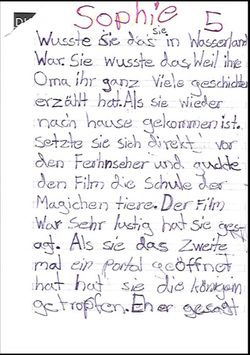 Sophie 5
sie
Wusste Sie das in Wasserland
War. Sie wusste das Weil ihre
Oma ihr ganz Viele geschichten
erzällt hat. Als sie wieder
nach hause gekommen ist.
Setzte sie sich direkt vor
den Ferhnseher und guckte
den Film die Schule der
Magichen tiere. Der Film
War Sehr lustig hat sie gees
agt. Als sie das Zweite
mal ein Portal geöffnet
hat hat sie die königen
getropfen. Eher gesagt